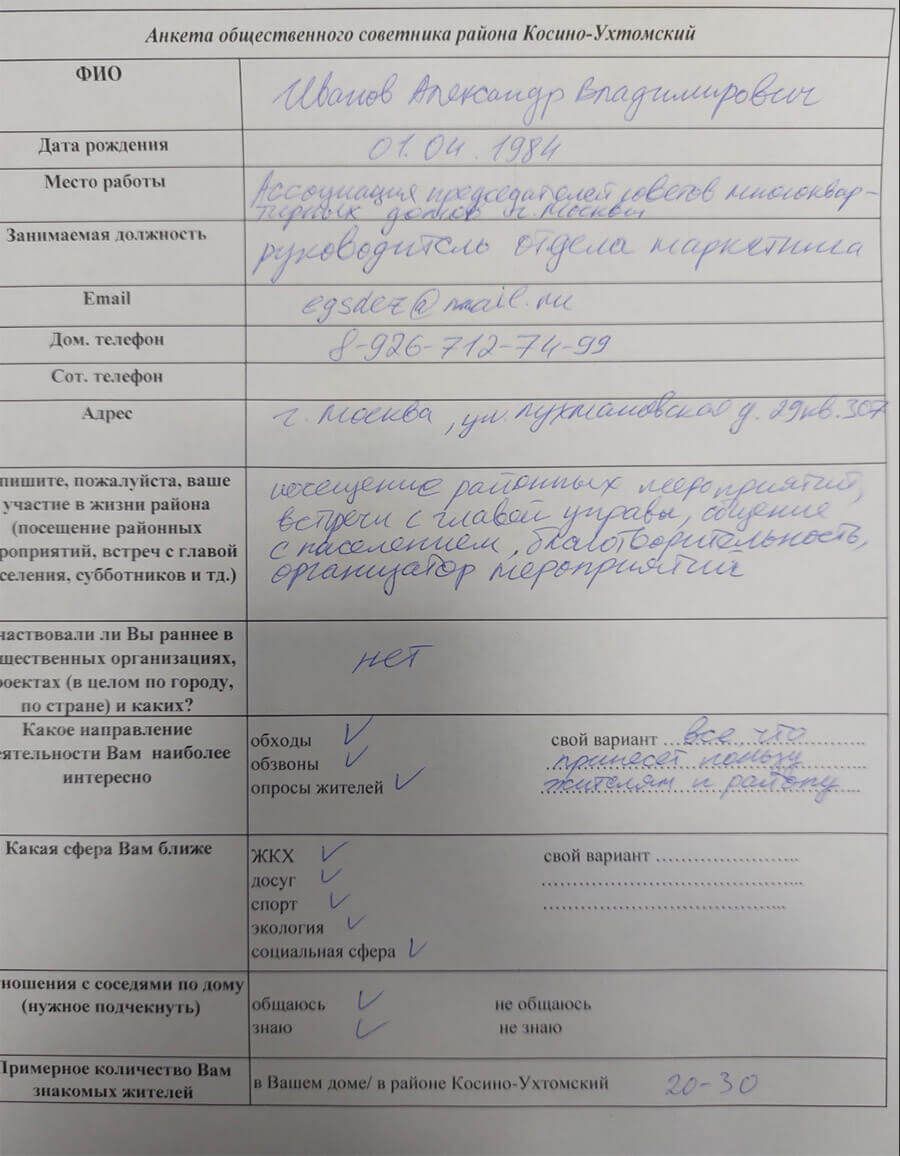 Анкета общественного советника района Косино-Ухтомский
ФИО
Иванов Александр Владимирович
Дата рождения
01.04.1984
Место работы
Ассоциация председателей советов многоквар-
тирных домов г. Москвы
Занимаемая должность
руководитель отдела маркетинга
Email
egsdez@mail.ru
Дом. телефон
8-926-712-74-99
Сот. телефон
Адрес
г. Москва, ул. Лухмановская д. 29 кв. 307
пишите, пожалуйста, ваше
участие в жизни района
(посещение районных
роприятий, встреч с главой
селения, субботников и тд.)
посещение районных мероприятий,
встречи с главой управы, общение
с населением, благотворительность,
организатор мероприятий
частвовали ли Вы раннее в
щественных организациях,
роектах (в целом по городу,
по стране) и каких?
нет
Какое направление
еятельности Вам наиболее
интересно
обходы ✓ свой вариант все, что
обзвоны ✓ принесет пользу
опросы жителей ✓ жителям и району
Какая сфера Вам ближе
ЖКХ ✓ свой вариант
досуг ✓
спорт ✓
экология ✓
социальная сфера ✓
ношения с соседями по дому
(нужное подчекнуть)
общаюсь ✓ не общаюсь
знаю ✓ не знаю
Примерное количество Вам
знакомых жителей
в Вашем доме/ в районе Косино-Ухтомский 20-30